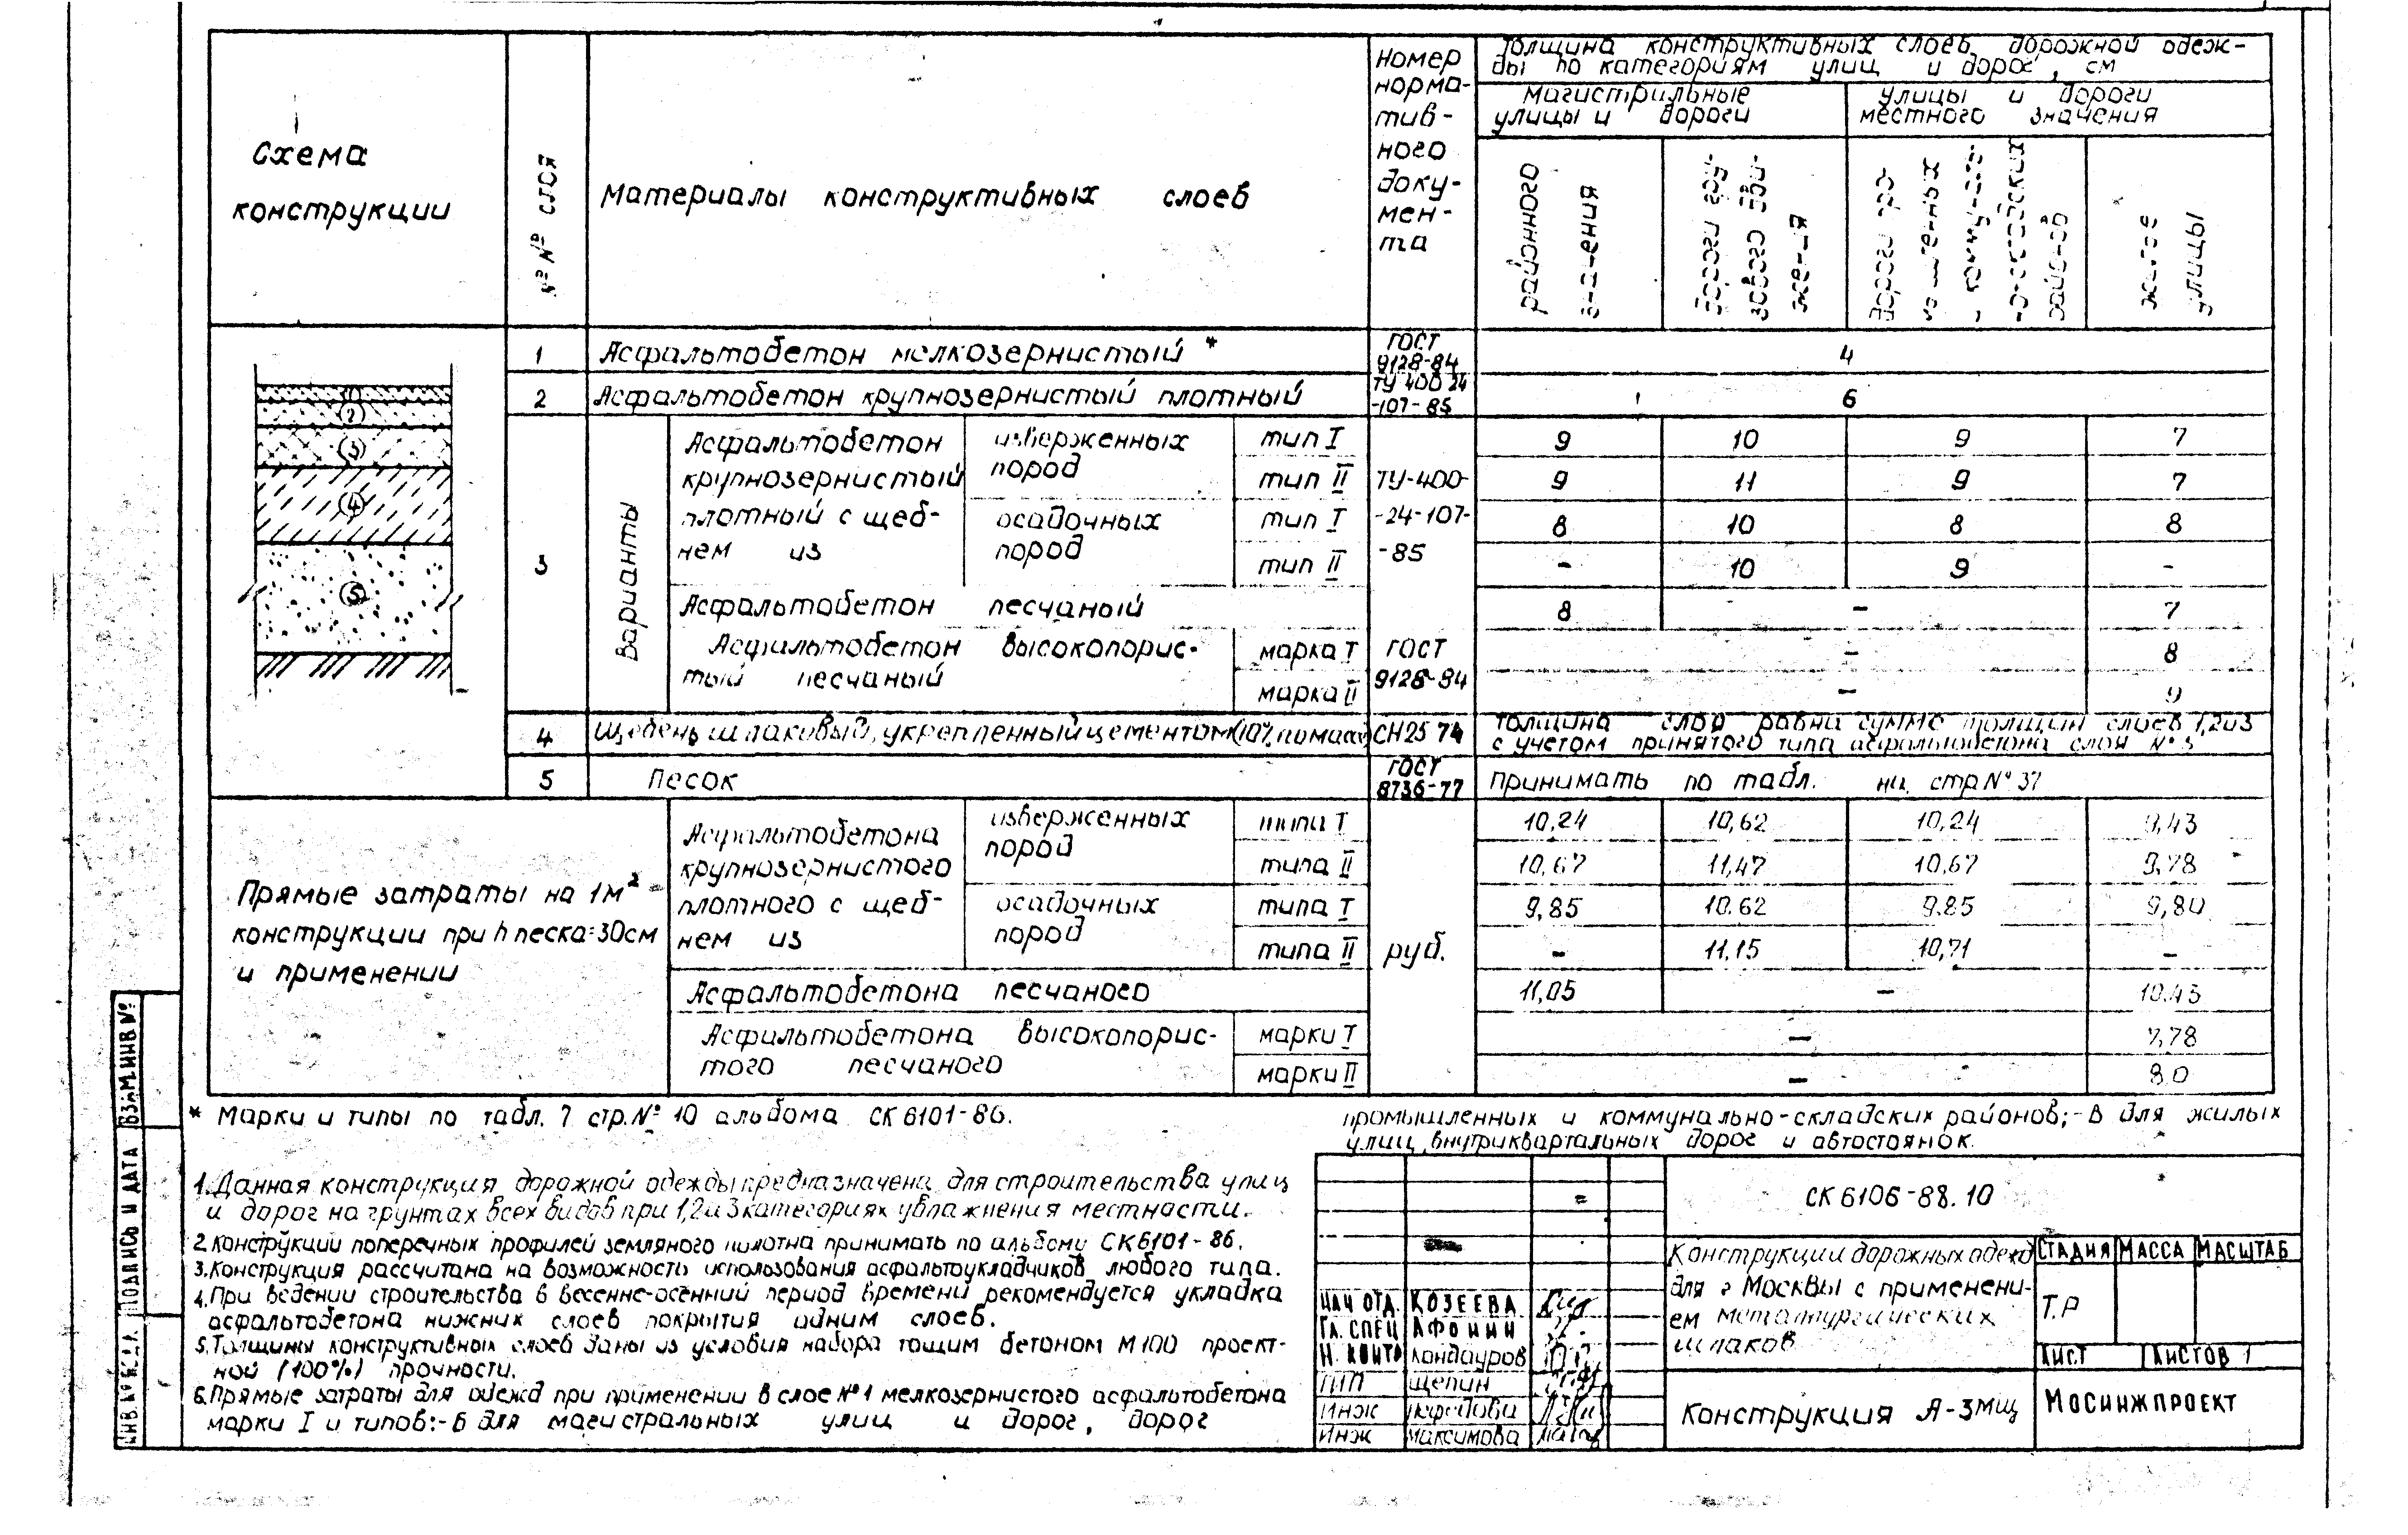 Схема
конструкции
№№ слоя
Материалы конструктивных слоев
Номер
норма-
тив-
ного
доку-
мен-
та
Толщина конструктивных слоев дорожной одеж-
ды по категориям улиц и дорог, см
Магистральные
улицы и дороги
улицы и дороги
местного значения
районного
значения
Дороги гру-
зового дви-
жения
Дороги про-
мышленных
и коммуналь-
но-складских
районов
жилые
улицы
1 Асфальтобетон мелкозернистый * ГОСТ 9128-84 4
2 Асфальтобетон крупнозернистый плотный ТУ 400 24 -107-85 6
3
Варианты
Асфальтобетон
крупнозернистый
плотный с щеб-
нем из
изверженных
пород
тип I 9 10 9 7
тип II 9 11 9 7
осадочных
пород
тип I 8 10 8 8
тип II - 10 9 -
ТУ-400-
-24-107-
-85
Асфальтобетон песчаный 8 - 7
Асфальтобетон высокопорис-
тый песчаный
марка I - 8
марка II - 9
ГОСТ
9128-84
4 Щебень шлаковый, укрепленный цементом (10% по массе) СН25 74
Толщина слоя равна сумме толщин слоев 1,2и3
с учетом принятого типа асфальтобетона слоя №3
5 Песок ГОСТ 8736-77 принимать по табл. на стр №37
1
2
3
4
5
Прямые затраты на 1м²
конструкции при h песка=30см
и применении
Асфальтобетона
крупнозернистого
плотного с щеб-
нем из
изверженных
пород
типа I 10,24 10,62 10,24 9,43
типа II 10,67 11,47 10,67 9,78
осадочных
пород
типа I 9,85 10.62 9.85 9,80
типа II - 11,15 10,71 -
руб.
Асфальтобетона песчаного 11,05 - 10.43
Асфальтобетона высокопорис-
того песчаного
марки I - 7,78
марки II - 8.0
* Марки и типы по табл. 7 стр.№ 10 альбома СК 6101-86.
1.Данная конструкция дорожной одежды предназначена для строительства улиц
и дорог на грунтах всех видов при 1,2и3 категориях увлажнения местности.
2.Конструкции поперечных профилей земляного полотна принимать по альбому СК6101-86.
3.Конструкция рассчитана на возможность использования асфальтоукладчиков любого типа.
4.При ведении строительства в весенне-осенний период времени рекомендуется укладка
асфальтобетона нижних слоев покрытия одним слоев.
5.Толщины конструктивных слоев даны из условия набора тощим бетоном М100 проект-
ной (100%) прочности.
6.Прямые затраты для одежд при применении в слое №1 мелкозернистого асфальтобетона
марки I и типов:-Б для магистральных улиц и дорог, дорог
промышленных и коммунально-складских районов;-В для жилых
улиц, внутриквартальных дорог и автостоянок.
СК 6106-88.10
Конструкции дорожных одежд
для г Москвы с применени-
ем металлургических
шлаков
СТАДИЯ МАССА МАСШТАБ
Т.Р
ЛИСТ ЛИСТОВ 1
Конструкция А-3мщ
МОСИНЖПРОЕКТ
НАЧ ОТД. КОЗЕЕВА
ГЛ. СПЕЦ АФОНИН
Н. КОНТР Кондауров
ГИП Щепин
ИНЖ
ИНЖ Максимова
ВЗАМ.ИНВ №
ПОДПИСЬ И ДАТА
ИНВ.№ ПОДЛ.